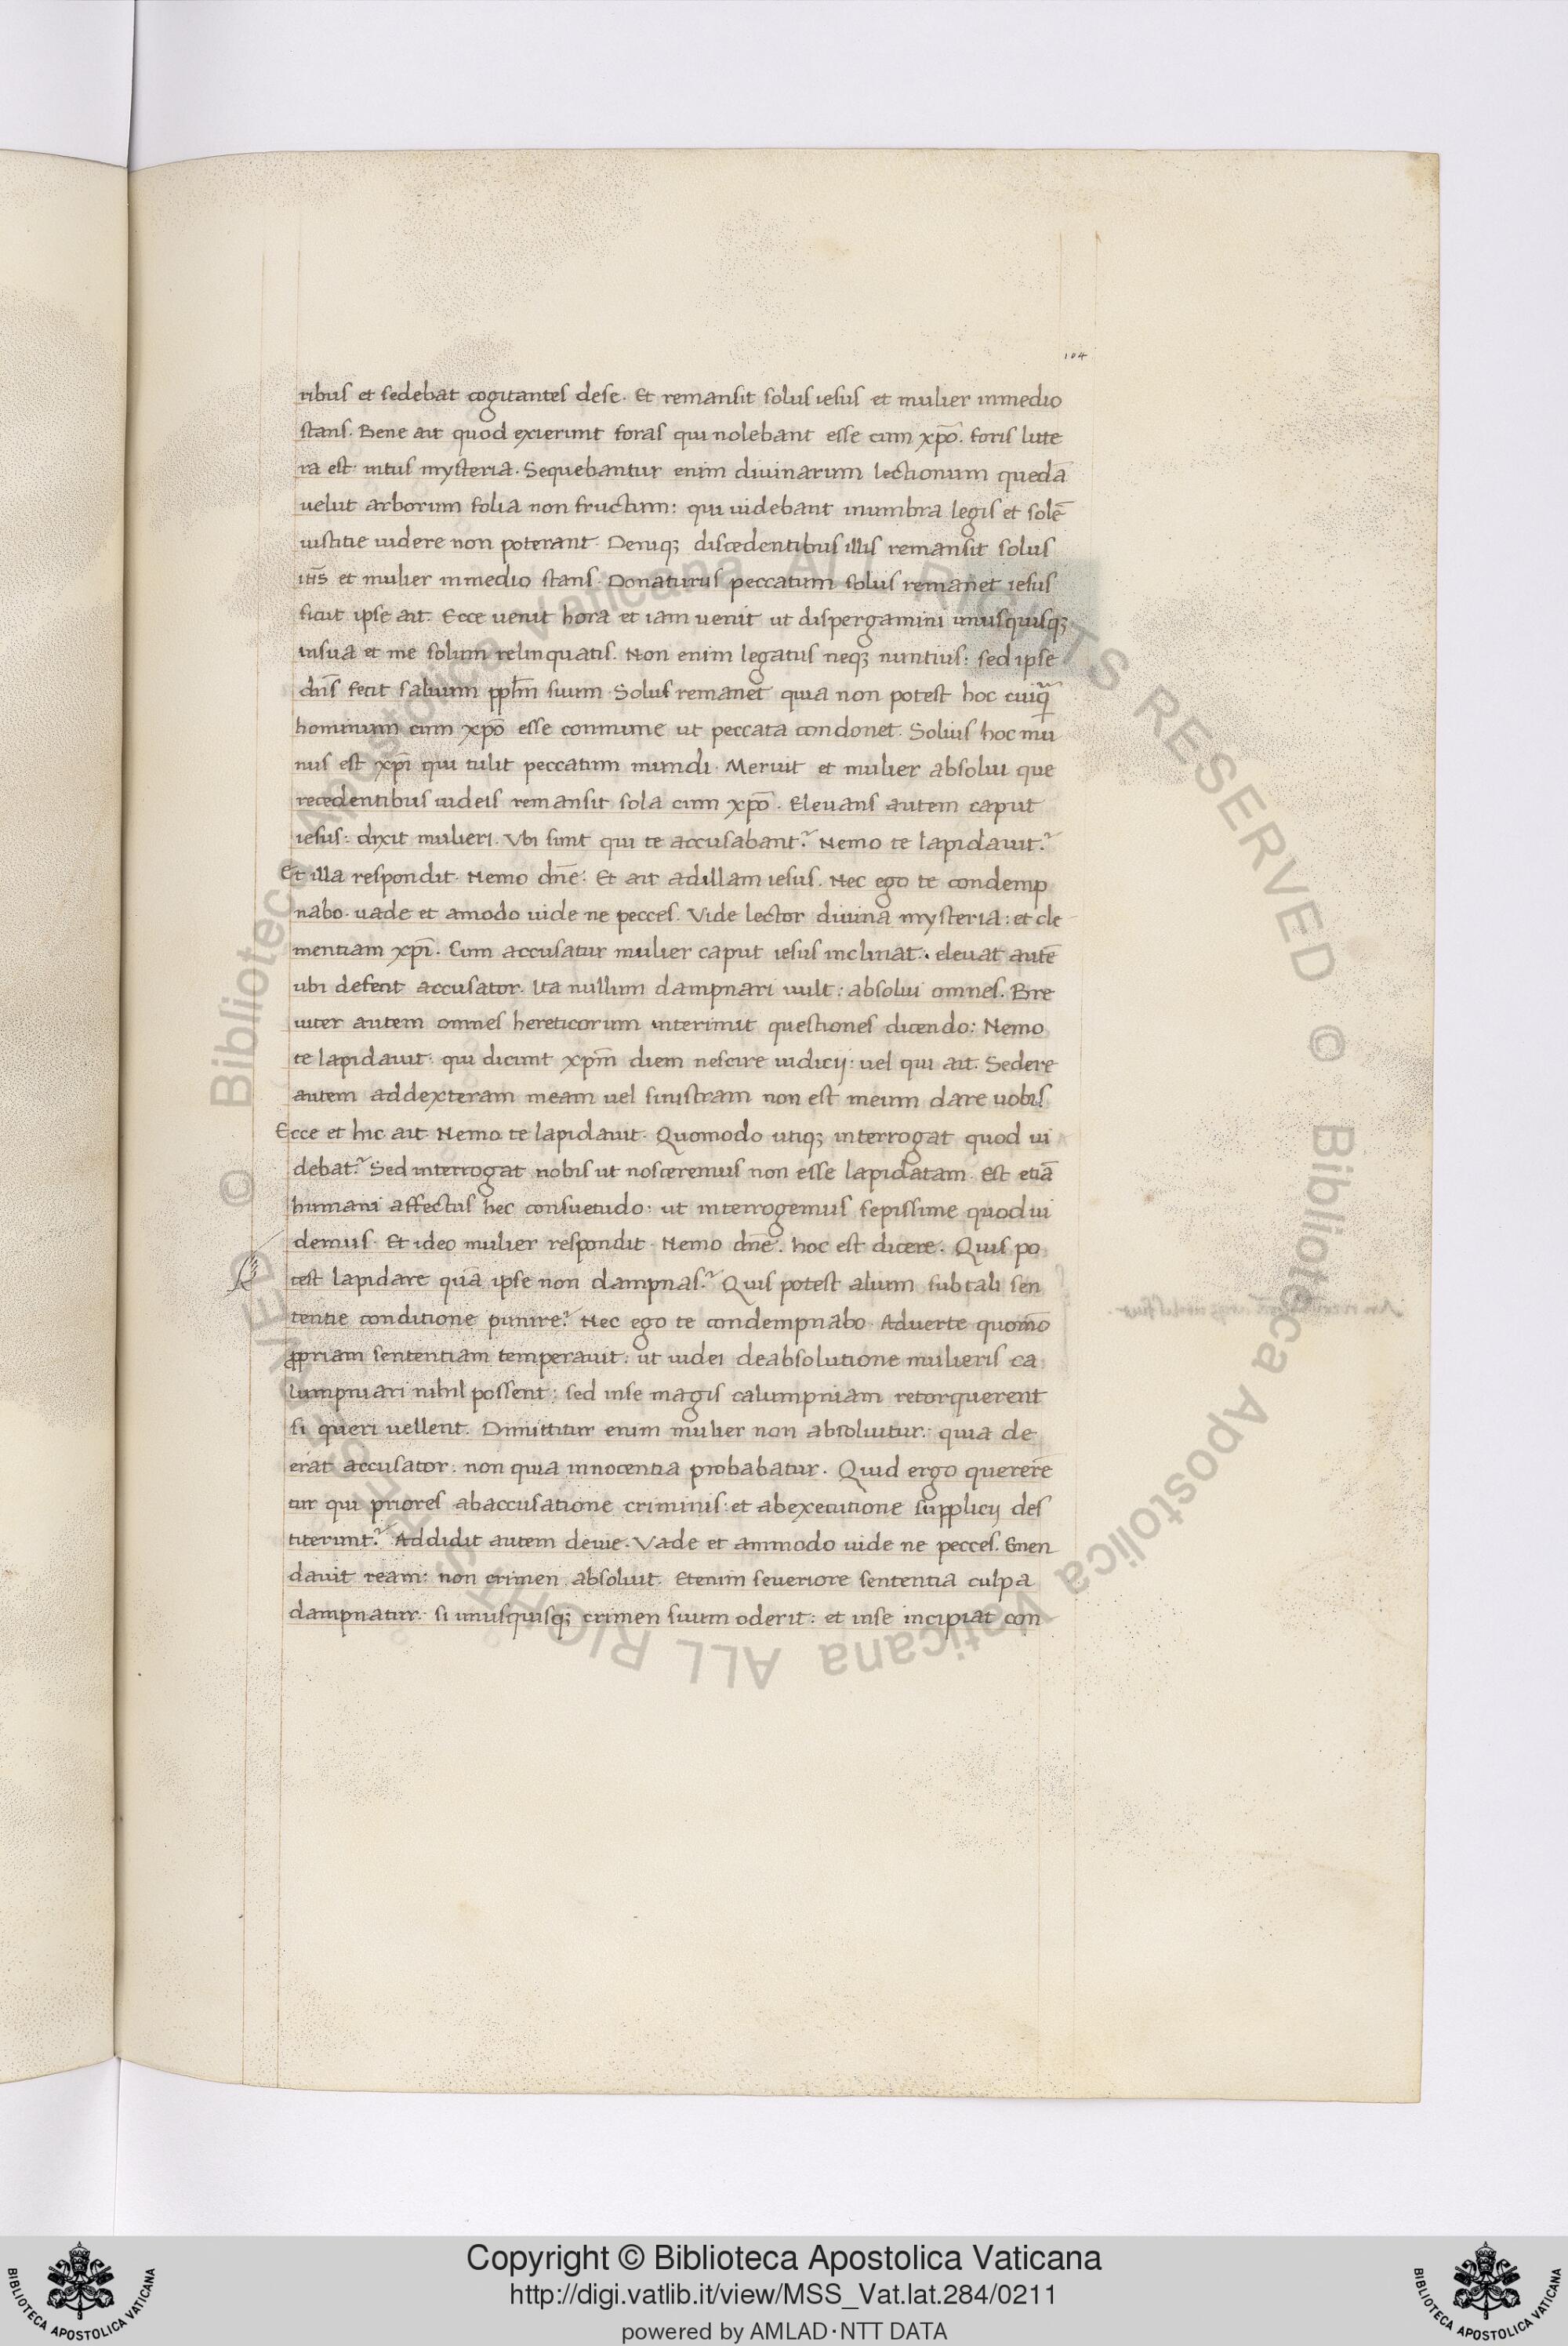 104
ribus et sedebat cogitantes dese. Et remansit solus iesus et mulier inmedio
stans. Bene ait quod exierunt foras qui nolebant esse cum xp̄o. foris litte
ra est intus mysteria. Sequebantur enim diuinarum lectionum quedā
uelut arborum folia non fructum: qui uidebant inumbra legis et solē
iustitie uidere non poterant. Deniq; discedentibus illis remansit solus
ih̄s et mulier inmedio stans. Donaturus peccatum solus remanet iesus
sicut ipse ait. Ecce uenit hora et iam uenit ut dispergamini unusquisq;
insua et me solum relinquatis. Non enim legatus neq; nuntius: sed ipse
dn̄s fecit saluum pplm̄ suum. Solus remanet quia non potest hoc cuiq̄
hominum cum xp̄o esse conmune ut peccata condonet. Solius hoc mu
nus est xp̄i qui tulit peccatum mundi. Meruit et mulier absolui que
recedentibus iudeis remansit sola cum xp̄o. Eleuans autem caput
iesus: dixit mulieri. Vbi sunt qui te accusabant? Nemo te lapidauit?
Et illa respondit. Nemo dn̄e. Et ait adillam iesus. Nec ego te condemp
nabo. uade et amodo uide ne pecces. Vide lector diuina mysteria: et cle
mentiam xp̄i. Cum accusatur mulier caput iesus inclinat. eleuat autē
ubi deficit accusator. Ita nullum dampnari uult: absolui omnes. Bre
uiter autem omnes hereticorum interimit questiones dicendo: Nemo
te lapidauit. qui dicunt xp̄m diem nescire iudicij: uel qui ait. Sedere
autem addexteram meam uel sinistram non est meum dare uobis.
Ecce et hic ait. Nemo te lapidauit. Quomodo utiq; interrogat quod ui
debat? Sed interrogat nobis ut nosceremus non esse lapidatam. Est etiā
humani affectus hec consuetudo: ut interrogemus sepissime quod ui
demus. Et ideo mulier respondit. Nemo dn̄e. hoc est dicere. Quis po
test lapidare quā ipse non dampnas? Quis potest alium subtali sen
tentie conditione punire? Nec ego te condempnabo. Aduerte quom̄o
ppriam sententiam temperauit: ut iudei deabsolutione mulieris ca
lumpniari nihil possent: sed inse magis calumpniam retorquerent
si queri uellent. Dimittitur enim mulier non absoluitur: quia de
erat accusator. non quia innocentia probabatur. Quid ergo quererē
tur qui priores abaccusatione criminis: et abexecutione supplicij des
titerunt? Addidit autem Vade et ammodo uide ne pecces. Emen
dauit ream: non crimen absoluit. Etenim seueriore sententia culpa
dampnatur. si unusquisq; crimen suum oderit: et inse incipiat con
© Biblioteca Apostolica Vaticana ALL RIGHTS RESERVED © Biblioteca Apostolica Vaticana ALL RIGHTS RESERVED
Copyright © Biblioteca Apostolica Vaticana
http://digi.vatlib.it/view/MSS_Vat.lat.284/0211
powered by AMLAD·NTT DATA
BIBLIOTECA APOSTOLICA VATICANA
BIBLIOTECA APOSTOLICA VATICANA